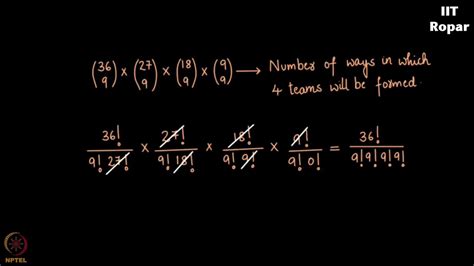 IIT
Ropar
(36 9) × (27 9) × (18 9) × (9 9) → Number of ways in which
4 teams will be formed.
36!/9! 27! × 27!/9! 18! × 18!/9! 9! × 9!/9! 0! = 36!/9! 9! 9! 9!
NPTEL